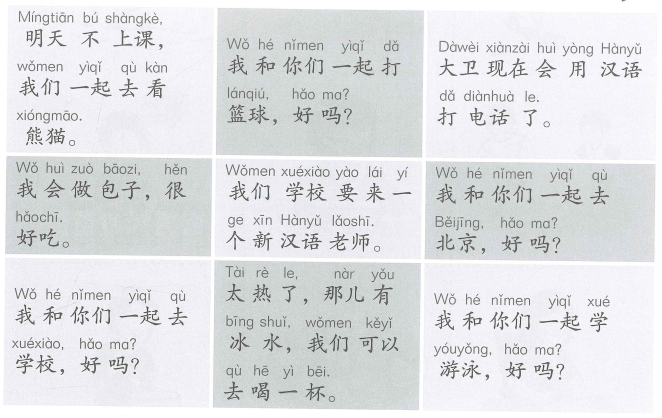 Míngtiān bú shàngkè,
明天 不 上课，
wǒmen yìqǐ qù kàn
我们 一起 去 看
xióngmāo.
熊猫。
Wǒ hé nǐmen yìqǐ dǎ
我 和 你们 一起 打
lánqiú, hǎo ma?
篮球，好 吗？
Dàwèi xiànzài huì yòng Hànyǔ
大卫 现在 会 用 汉语
dǎ diànhuà le.
打 电话 了。
Wǒ huì zuò bāozi, hěn
我 会 做 包子，很
hǎochī.
好吃。
Wǒmen xuéxiào yào lái yí
我们 学校 要 来 一
ge xīn Hànyǔ lǎoshī.
个 新 汉语 老师。
Wǒ hé nǐmen yìqǐ qù
我 和 你们 一起 去
Běijīng, hǎo ma?
北京，好 吗？
Wǒ hé nǐmen yìqǐ qù
我 和 你们 一起 去
xuéxiào, hǎo ma?
学校，好 吗？
Tài rè le, nàr yǒu
太 热 了，那儿 有
bīng shuǐ, wǒmen kěyǐ
冰 水，我们 可以
qù hē yì bēi.
去 喝 一 杯。
Wǒ hé nǐmen yìqǐ xué
我 和 你们 一起 学
yóuyǒng, hǎo ma?
游泳，好 吗？